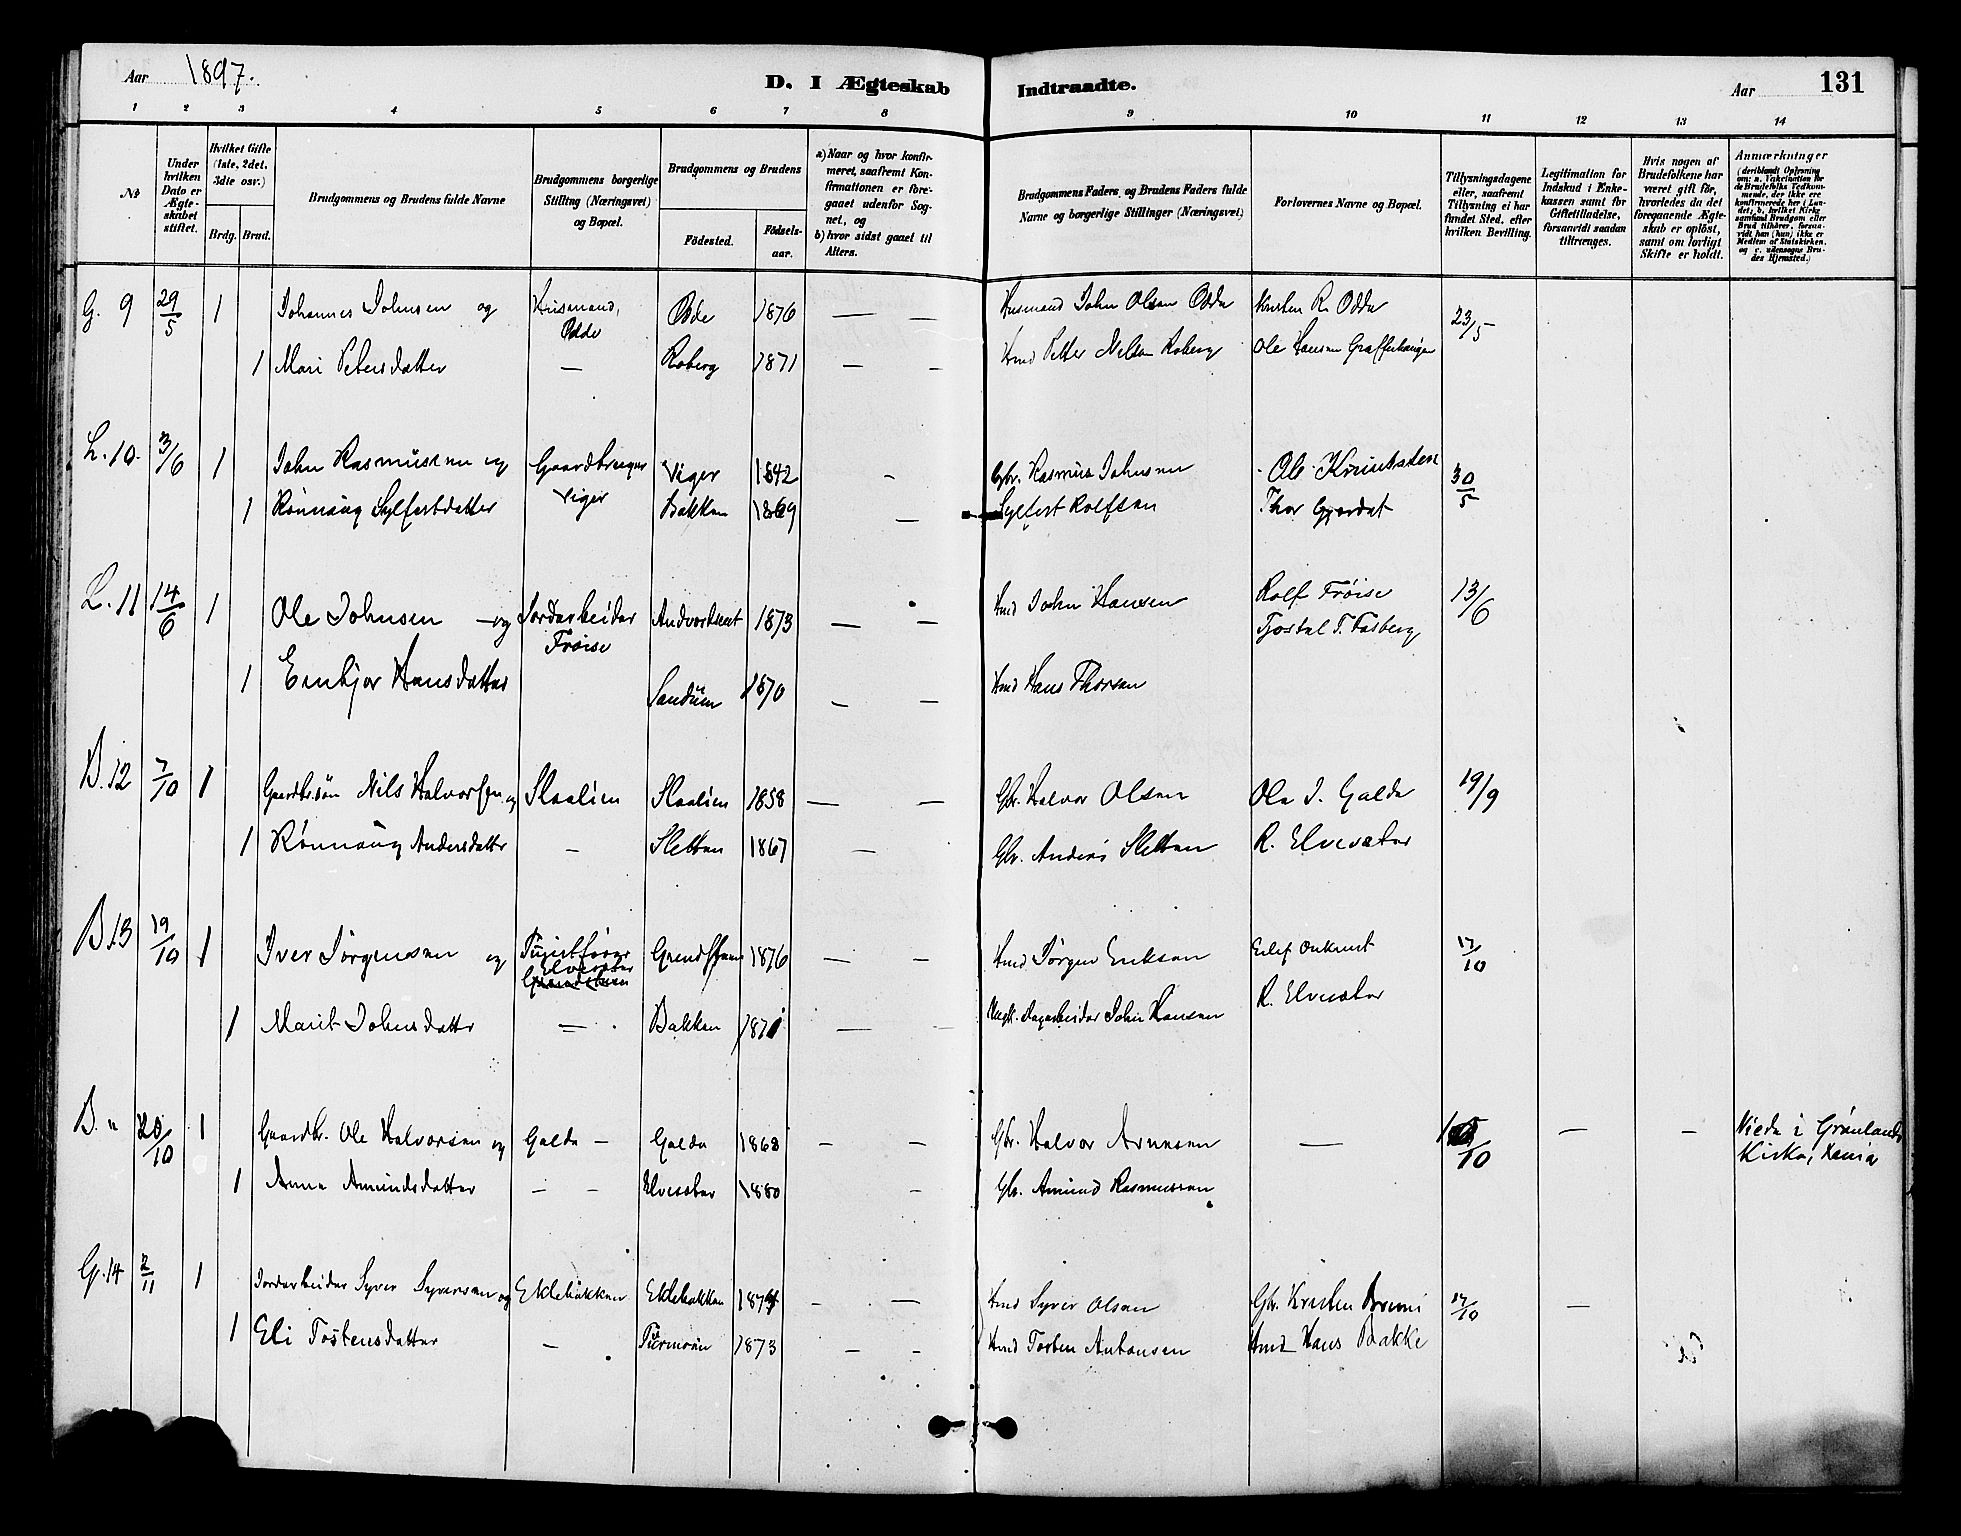 Aar 1897.
D. I Ægteskab Indtraadte.
Aar 131
1 2 3 4 5 6 7 8 9 10 11 12 13 14
No
Under hvilken Dato er Ægteskabet stiftet.
Hvilket Gifte (1ste, 2det, 3die osv.)
Brdg. Brud.
Brudgommens og Brudens fulde Navne
Brudgommens borgerlige Stilling (Næringsvei) og Bopæl.
Brudgommens og Brudens
Födested.
Födselsaar.
a) Naar og hvor konfirmeret, saafremt Konfirmationen er foregaaet udenfor Sognet, og
b) hvor sidst gaaet til Alters.
Brudgommens Faders og Brudens Faders fulde Navne og borgerlige Stillinger (Næringsvei)
Forlovernes Navne og Bopæl.
Tillysningsdagene eller, saafremt Tillysning ei har fundet Sted, efter hvilken Bevilling.
Legitimation for Indskud i Enkekassen samt for Giftetilladelse, forsaavidt saadan tiltrænges.
Hvis nogen af Brudefolkene har været gift för, hvorledes da det foregaaende Ægteskab er oplöst, samt om lovligt Skifte er holdt.
Anmærkninger (deriblandt Oplysning om: a. Vakcination for de Brudefolks Vedkommende, der ikke ere konfirmerede her i Landet, b. hvilket Kirkesamfund Brudgom eller Brud tilhörer, forsaavidt han (hun) ikke er Medlem af Statskirken, og c. udensogns Brudes Hjemsted.)
G. 9 29/5 1 Johannes Johnsen og Husmand, Odde Odde 1876 — — Husmand John Olsen Odde Kristen R. Odde 23/5
1 Mari Petersdatter — Roberg 1871 — — Hmd Petter Nelsen Roberg Ole Hansen Graffer
L. 10. 3/6 1 John Rasmussen og Gaardbruger Viger Viger 1842 - Gbr. Rasmus Johnsen Ole 30/5
1 Rønnaug Sylfestdatter Bakken 1869 — Sylfest Rolfsen Thor Gjerdet
L. 11 14/6 1 Ole Johnsen og Jordarbeider Frøise Andvord 1873 — — Hmd John Hansen Rolf Frøise 13/6
1 Hansdatter Sandum 1870 — — Hmd Hans Thorsen
B. 12 7/10 1 Gaardbr.søn Nils Halvorsen og Slaalien Slaalien 1858 — — Gbr. Halvor Olsen Ole J. Galde 19/9
1 Rønnaug Andersdatter — Sletten 1867 — Gbr. Anders Sletten R. Elvesæter
B 13 19/10 1 Iver Jørgensen og Elvesæter 1876 — — Hmd Jørgen Eriksen Eilef 17/10
1 Marit Johnsdatter — Bakken 1871 — — Dagarbeider John Hansen R. Elvesæter
B. " 20/10 1 Gaardbr. Ole Halvorsen og Galde — Galde 1868 — — Gbr. Halvor Arnesen — /10 — — Viede i Grønlands Kirke,
1 Anna Amundsdatter — — Elvesæter 1880 — Gbr. Amund Rasmussen
G. 14 2/11 1 Jordarbeider Syver Syversen og Eklebakken Eklebakken 187 — — Hmd Syver Olsen Gbr. Kristen 17/10 —
1 Eli Tostensdatter — 1873 — — Hmd Tosten Antonsen Hmd Hans Bakke